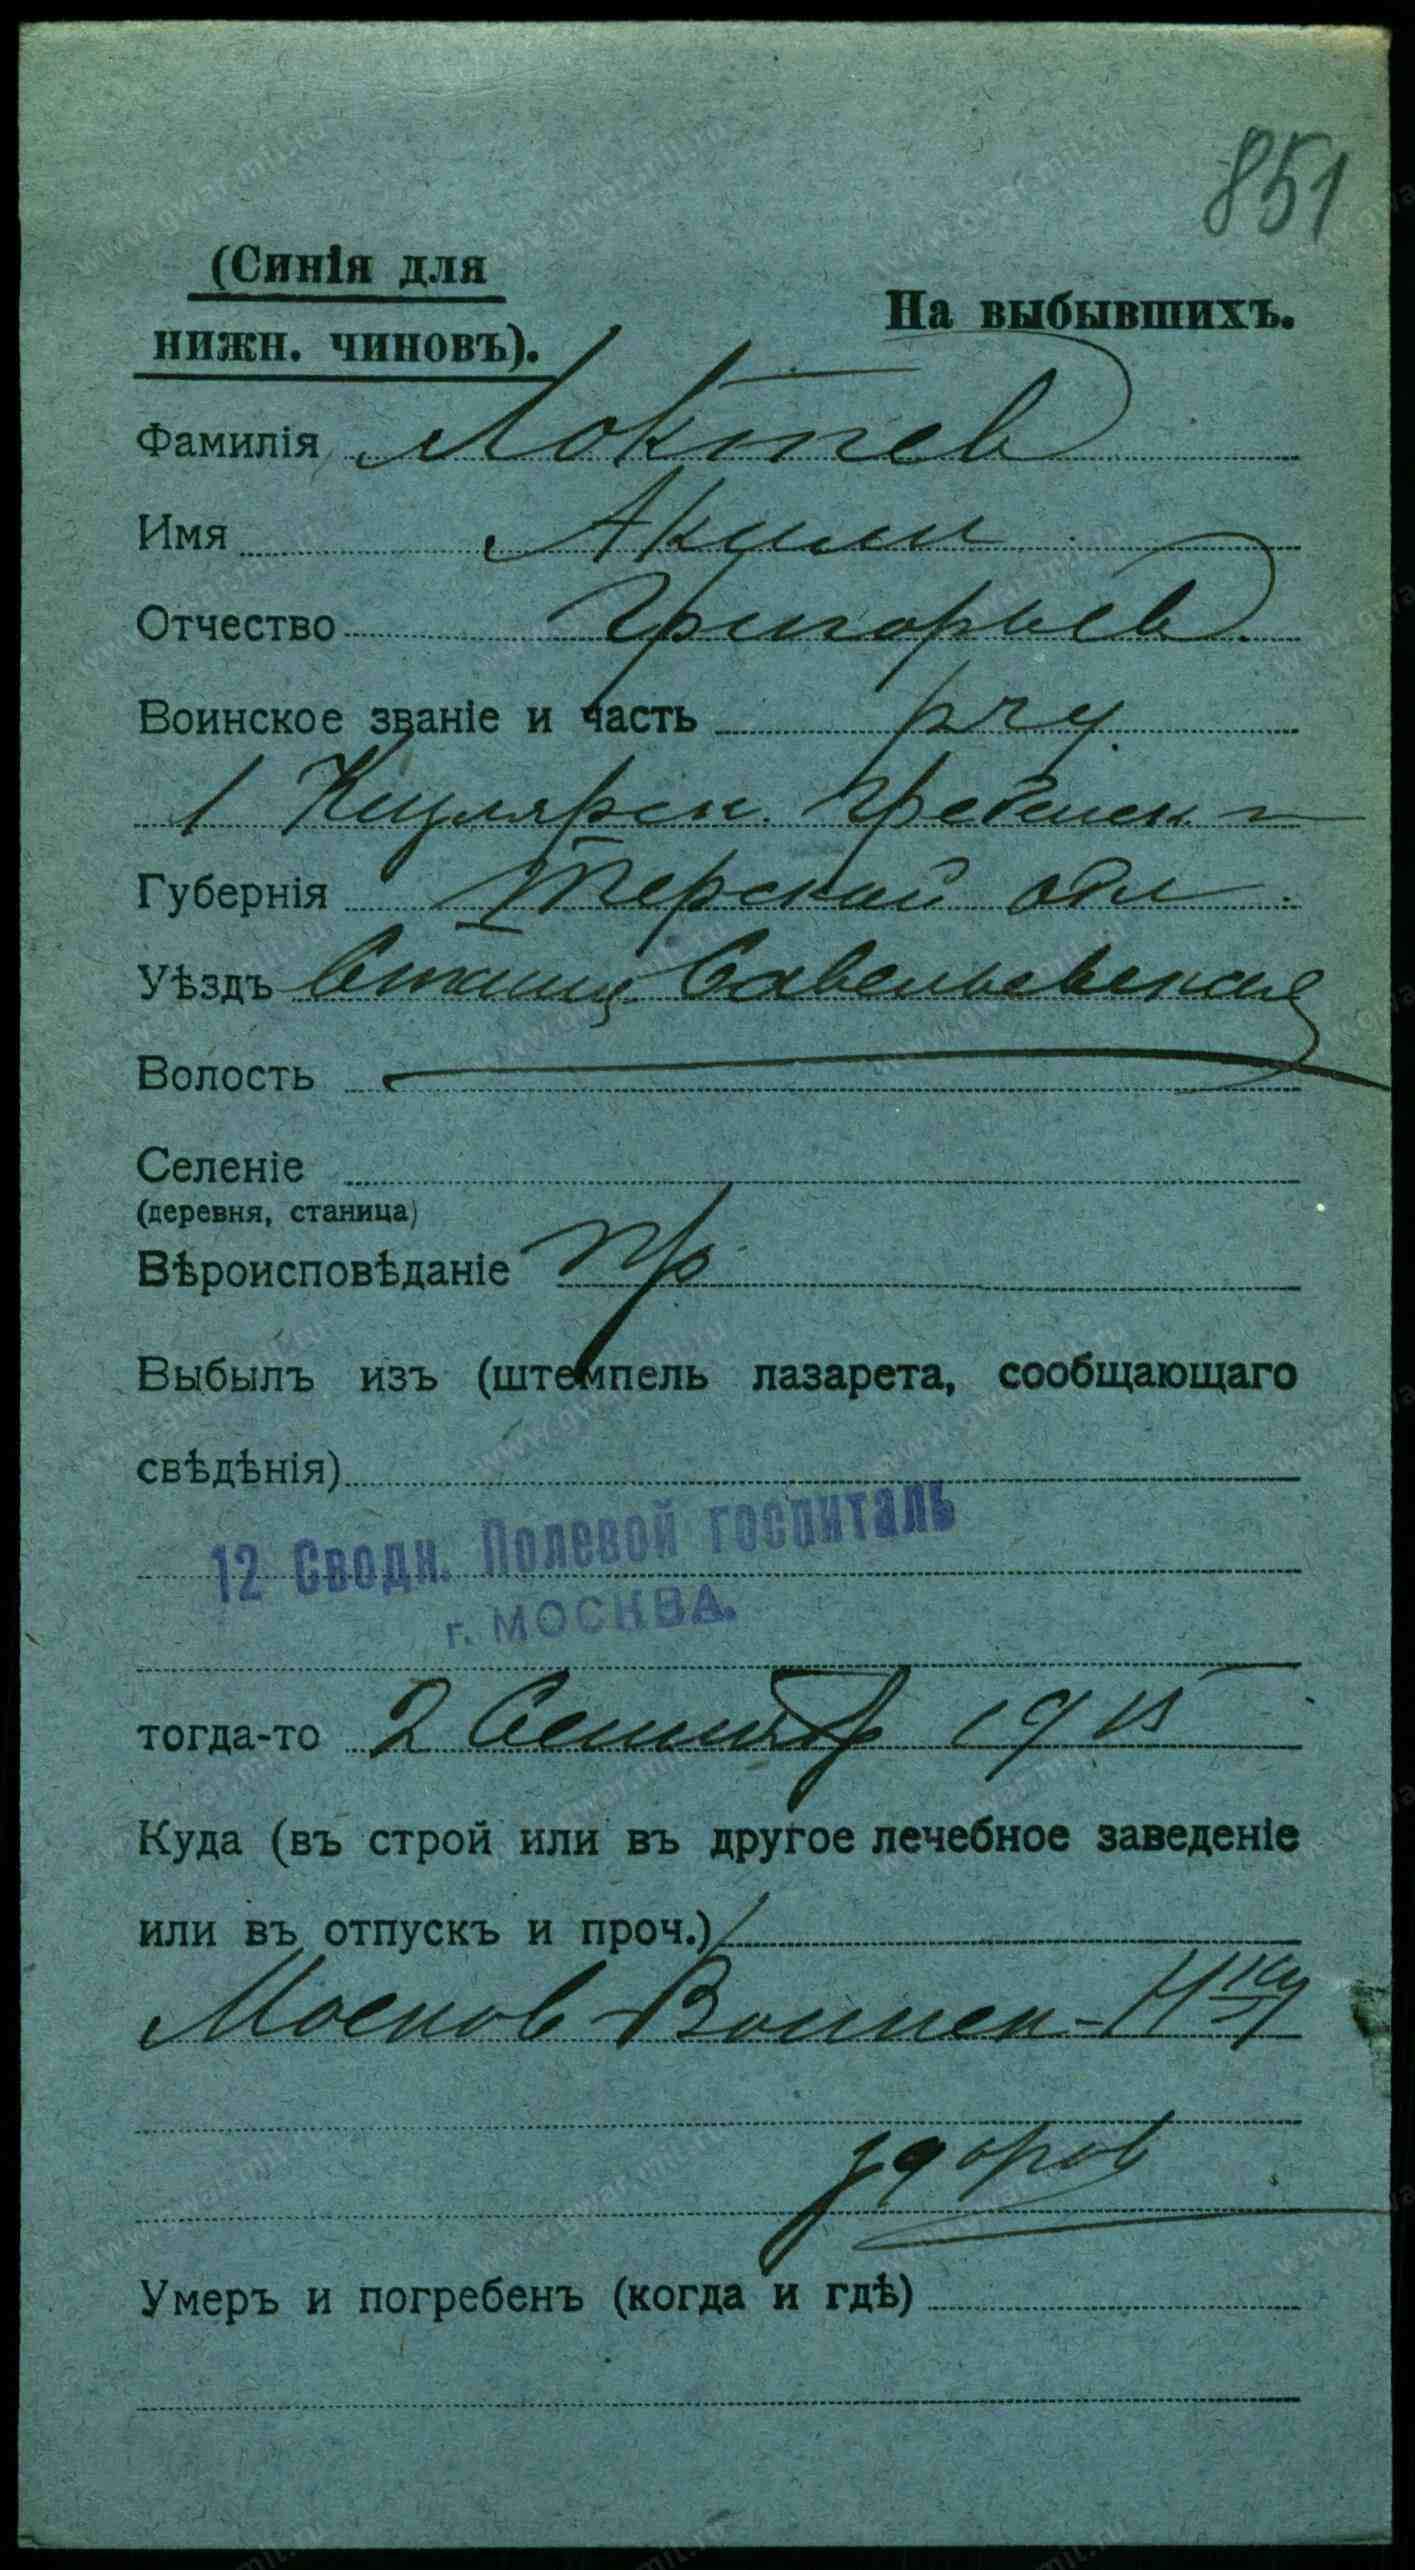 851
(Синія для
нижн. чиновъ).
На выбывшихъ.
Фамилія Локтев
Имя Аким
Отчество Григорьев
Воинское званіе и часть
1 Кизлярск. Гребенск. п
Губернія Терской обл.
Уѣздъ Станиц. Савельевская
Волость
Селеніе
(деревня, станица)
Вѣроисповѣданіе пр
Выбылъ изъ (штемпель лазарета, сообщающаго
свѣдѣнія)
12 Сводн. Полевой госпиталь
г. МОСКВА.
тогда-то 2 Сентяб 1915
Куда (въ строй или въ другое лечебное заведеніе
или въ отпускъ и проч.)
Москов Воинск. Н-ку
здоров
Умеръ и погребенъ (когда и гдѣ)